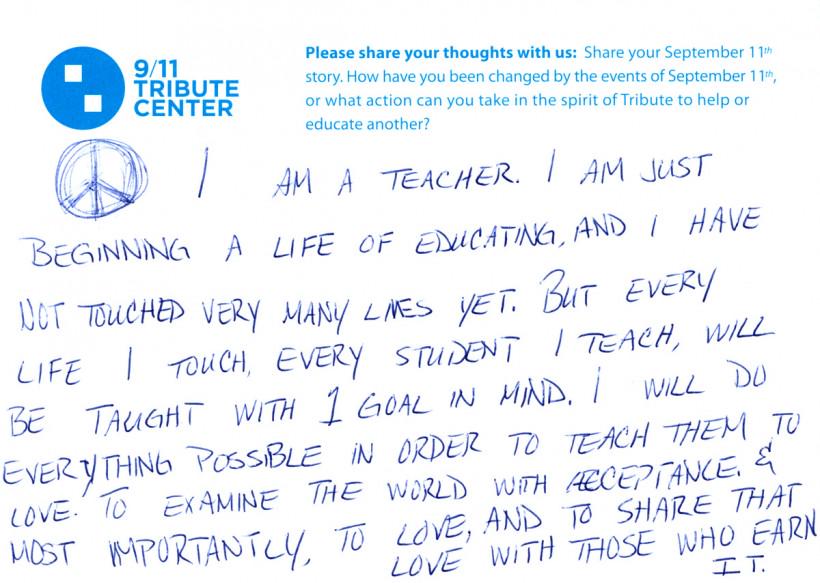 9/11
TRIBUTE
CENTER
Please share your thoughts with us: Share your September 11th
story. How have you been changed by the events of September 11th,
or what action can you take in the spirit of Tribute to help or
educate another?
I AM A TEACHER. I AM JUST
BEGINNING A LIFE OF EDUCATING, AND I HAVE
NOT TOUCHED VERY MANY LIVES YET. BUT EVERY
LIFE I TOUCH, EVERY STUDENT I TEACH, WILL
BE TAUGHT WITH 1 GOAL IN MIND. I WILL DO
EVERYTHING POSSIBLE IN ORDER TO TEACH THEM TO
LOVE. TO EXAMINE THE WORLD WITH ACCEPTANCE. &
MOST IMPORTANTLY, TO LOVE, AND TO SHARE THAT
LOVE WITH THOSE WHO EARN
IT.